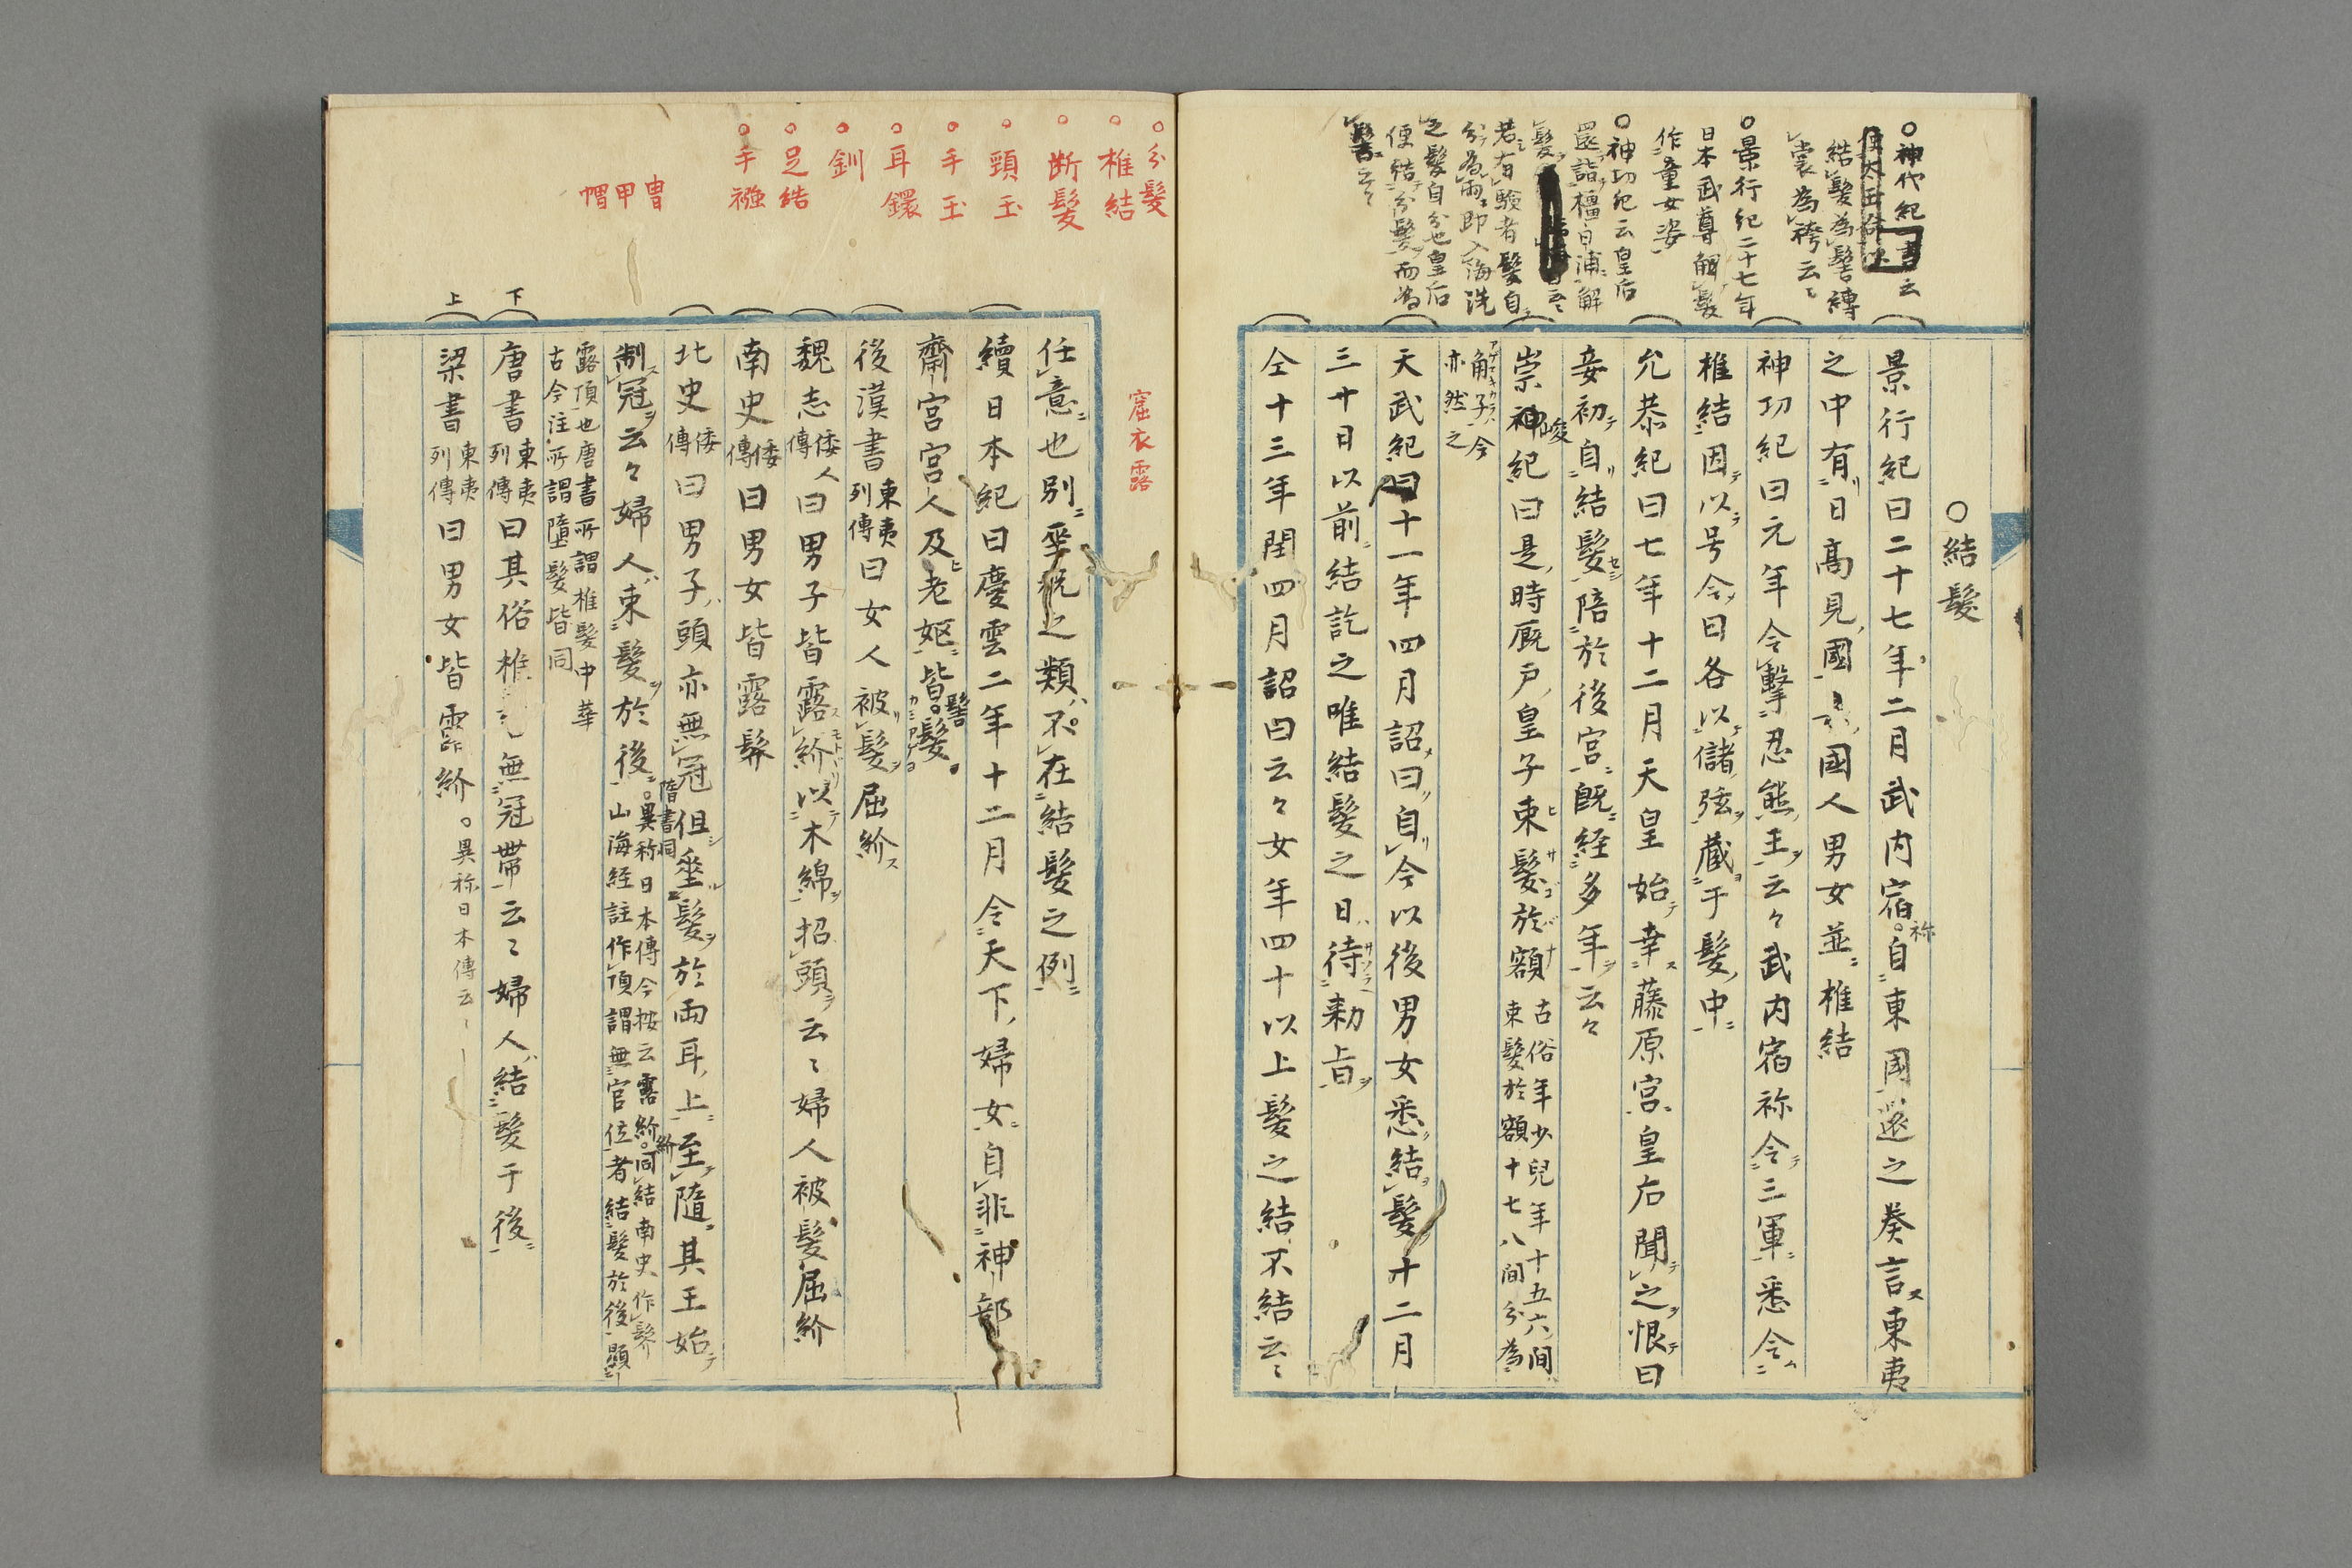 ○神代紀書云
結髮為髻縛
裳為袴云々
○景行紀二十七年
日本武尊解髮
作童女姿
○神功紀云皇后
還詣橿日浦解
髮
若有驗者髮自
分為兩即入海洗
之髮自分也皇后
便結分髮而為
髻云々
○結髮
景行紀曰二十七年二月武内宿祢自東國還之奏言東夷
之中有日高見國國人男女並椎結
神功紀曰元年令擊忍熊王云々武内宿祢令三軍悉令
椎結因以号令曰各以儲弦蔵于髮中
允恭紀曰七年十二月天皇始幸藤原宮皇后聞之恨曰
妾初自結髮陪於後宮既経多年云々
崇峻紀曰是時厩戸皇子束髮於額古俗年少兒年十五六間
束髮於額十七八間分為
角子今
亦然之
天武紀曰十一年四月詔曰自今以後男女悉結髮十二月
三十日以前結訖之唯結髮之日待勅旨
仝十三年閏四月詔曰云々女年四十以上髮之結不結云々
○分髮
○椎結
○断髮
○頸玉
○手玉
○耳鐶
○釧
○足結
○手襁
冑
甲
帽
窟衣露
任意也別巫祝之類不在結髮之例
續日本紀曰慶雲二年十二月令天下婦女自非神部
齋宮宮人及老嫗皆髻髮
後漢書東夷列傳曰女人被髮屈紒
魏志倭人傳曰男子皆露紒以木綿招頭云々婦人被髮屈紒
南史倭傳曰男女皆露髻
北史倭傳曰男子頭亦無冠但垂髮於両耳上至隨其王始
隋書同
制冠云々婦人束髮於後異称日本傳今按云露紒紒同結南史作髻
山海経註作頂謂無官位者結髮於後顯
露頂也唐書所謂椎髮中華
古今注所謂墮髮皆同
下
唐書東夷列傳曰其俗椎無冠帶云々婦人結髮于後
上
梁書東夷列傳曰男女皆露紒異称日本傳云々